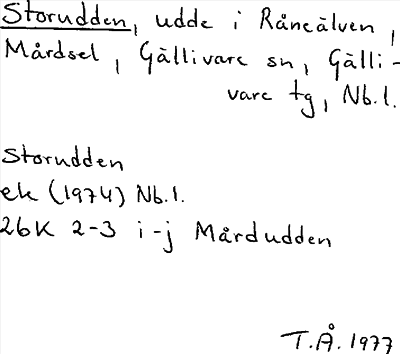 Storudden, udde i Råneälven,
Mårdsel, Gällivare sn, Gälli-
vare tg, Nb.l.
Storudden
ek (1974) Nb.l.
26K 2-3 i-j Mårdudden
T.Å. 1977